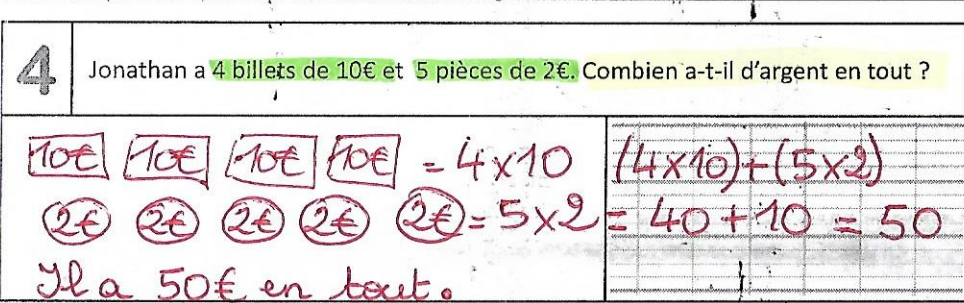 4
Jonathan a 4 billets de 10€ et 5 pièces de 2€. Combien a-t-il d'argent en tout ?
10€ 10€ 10€ 10€ = 4x10
2€ 2€ 2€ 2€ 2€ = 5x2
Il a 50€ en tout.
(4x10)+(5x2)
= 40 + 10 = 50